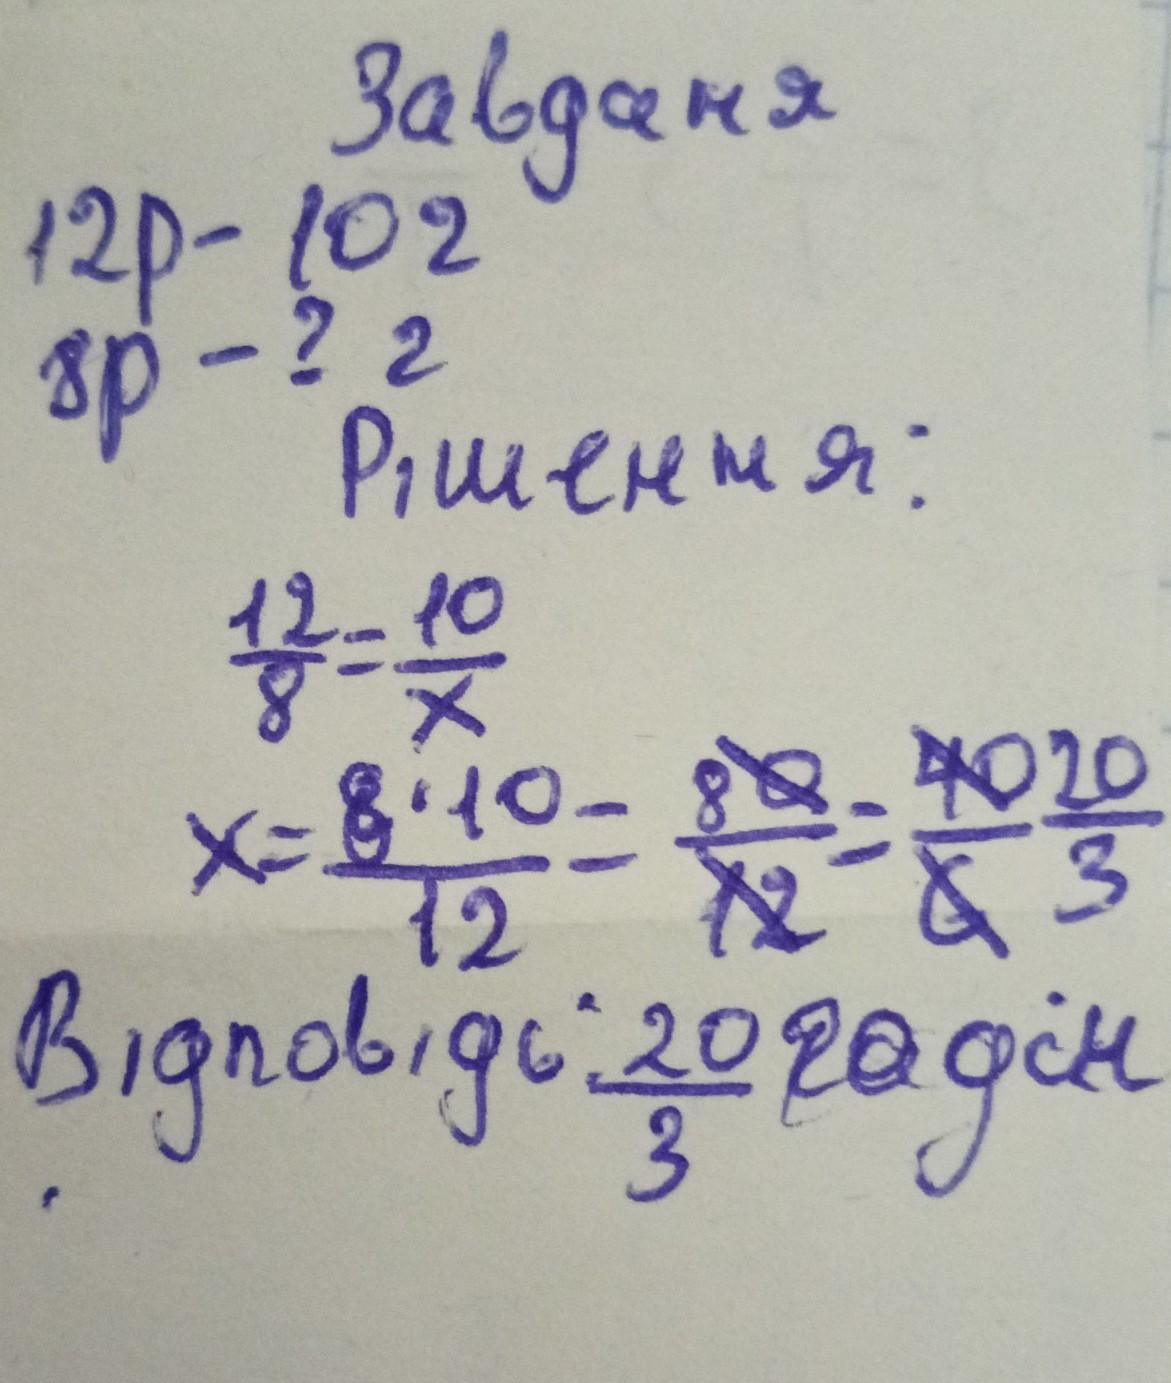 Завданя
12р - 10 г
8р - ? г
Рішення:
12/8 = 10/x
x = 8·10/12 = 80/12 = 40/6 20/3
Відповідь: 20/3 годін
.